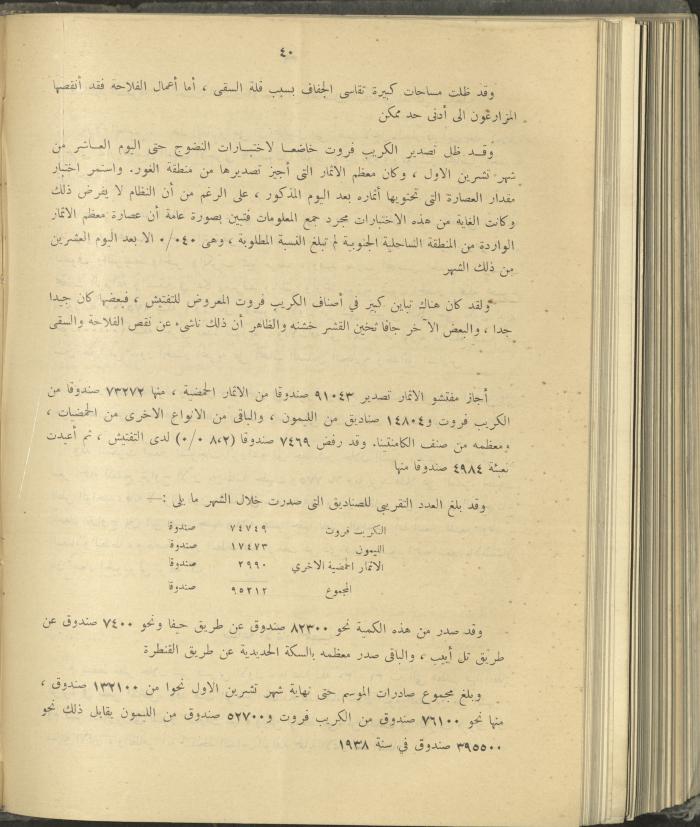 ٤٠
وقد ظلت مساحات كبيرة تقاسى الجفاف بسبب قلة السقى ، أما أعمال الفلاحة فقد أنقصها
المزارعون الى أدنى حد ممكن
وقد ظل تصدير الكريب فروت خاضعا لاختبارات النضوج حتى اليوم العاشر من
شهر تشرين الاول ، وكان معظم الاثمار التى أجيز تصديرها من منطقة الغور. واستمر اختبار
مقدار العصارة التى تحتويها أثماره بعد اليوم المذكور ، على الرغم من أن النظام لا يفرض ذلك
وكانت الغاية من هذه الاختبارات مجرد جمع المعلومات فتبين بصورة عامة أن عصارة معظم الاثمار
الواردة من المنطقة الساحلية الجنوبية لم تبلغ النسبة المطلوبة ، وهى ٠/٠٤٠ الا بعد اليوم العشرين
من ذلك الشهر
ولقد كان هناك تباين كبير في أصناف الكريب فروت المعروض للتفتيش ، فبعضها كان جيدا
جدا ، والبعض الآخر جافا ثخين القشر خشنه والظاهر أن ذلك ناشىء عن نقص الفلاحة والسقى
أجاز مفتشو الاثمار تصدير ٩١٠٤٣ صندوقا من الاثمار الحمضية ، منها ٧٣٢٧٢ صندوقا من
الكريب فروت و١٤٨٠٤ صناديق من الليمون ، والباقى من الانواع الاخرى من الحمضيات ،
ومعظمه من صنف الكلمنتينا. وقد رفض ٧٤٦٩ صندوقا (٨،٢ ٠/٠) لدى التفتيش ، ثم أعيدت
تعبئة ٤٩٨٤ صندوقا منها
وقد بلغ العدد التقريبي للصناديق التى صدرت خلال الشهر ما يلى :—
الكريب فروت ٧٤٧٤٩ صندوقا
الليمون ١٧٤٧٣ صندوقا
الاثمار الحمضية الاخرى ٢٩٩٠ صندوقا
المجموع ٩٥٢١٢ صندوقا
وقد صدر من هذه الكمية نحو ٨٢٣٠٠ صندوق عن طريق حيفا ونحو ٧٤٠٠ صندوق عن
طريق تل أبيب ، والباقى صدر معظمه بالسكة الحديدية عن طريق القنطرة
وبلغ مجموع صادرات الموسم حتى نهاية شهر تشرين الاول نحوا من ١٣٢١٠٠ صندوق ،
منها نحو ٧٦١٠٠ صندوق من الكريب فروت و٥٢٧٠٠ صندوق من الليمون يقابل ذلك نحو
٣٩٥٥٠٠ صندوق في سنة ١٩٣٨